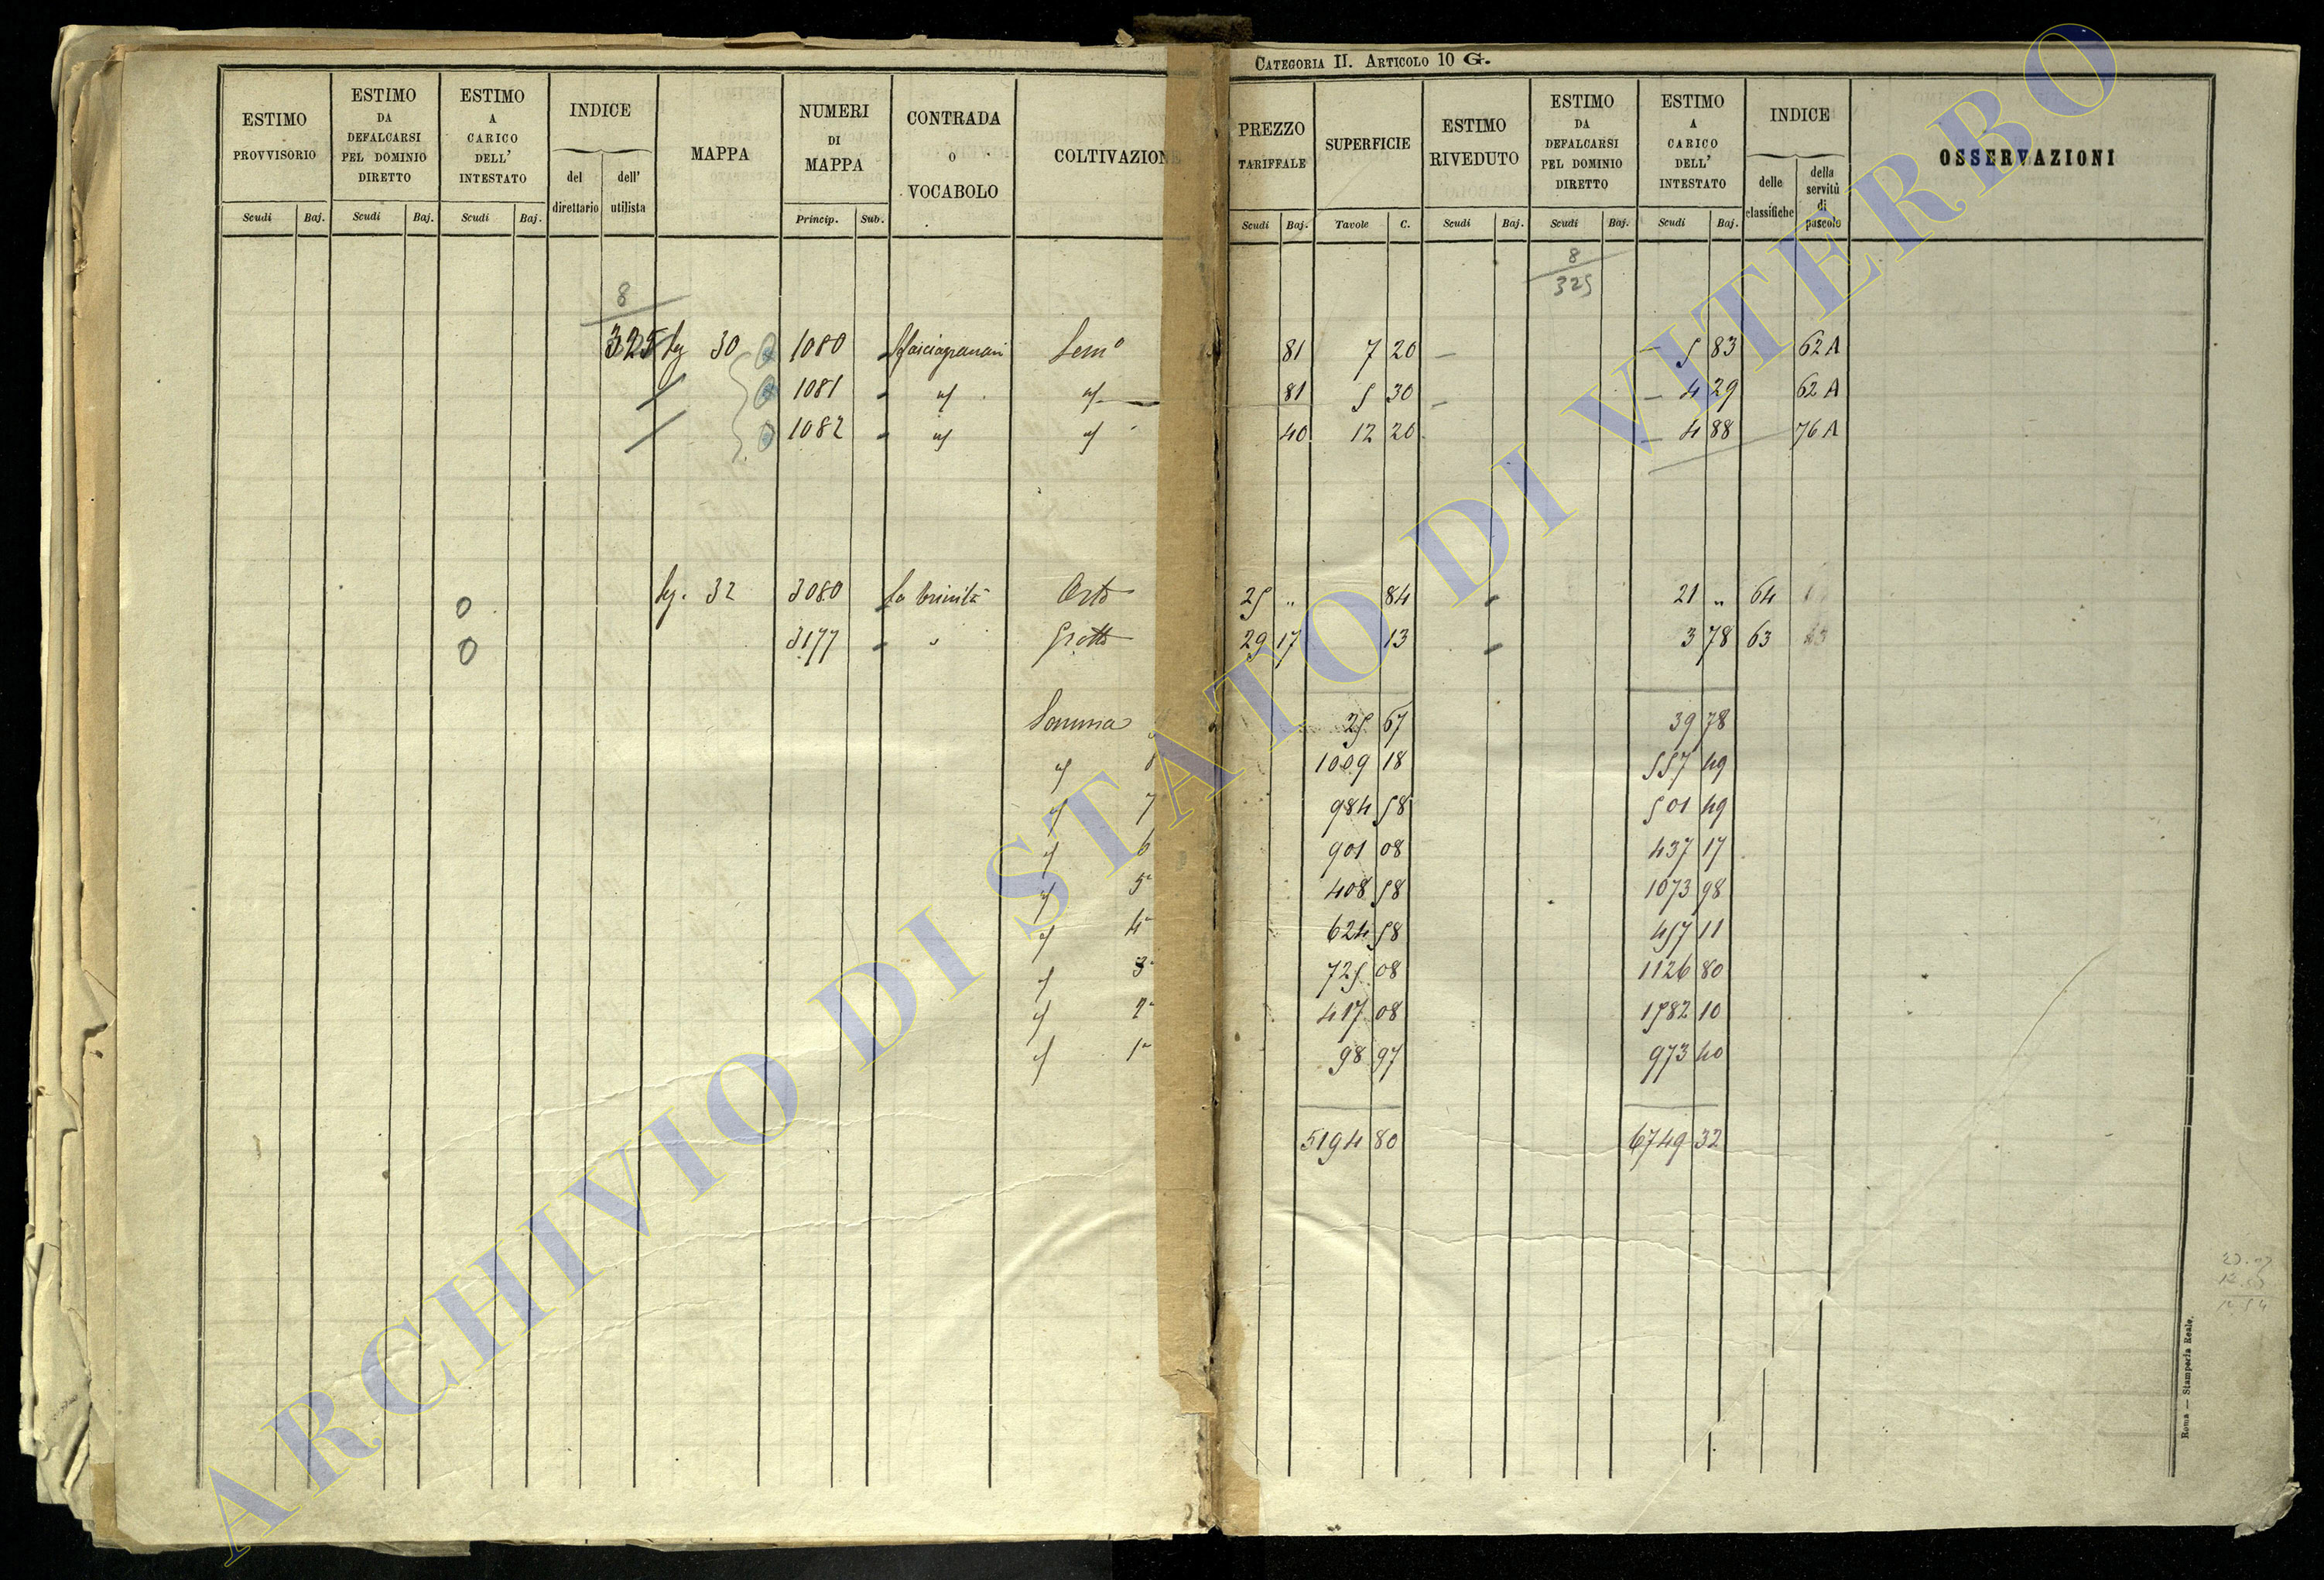 CATEGORIA II. ARTICOLO 10 G.
ESTIMO PROVVISORIO
ESTIMO DA DEFALCARSI PEL DOMINIO DIRETTO
ESTIMO A CARICO DELL' INTESTATO
INDICE
del direttario
dell' utilista
MAPPA
NUMERI DI MAPPA
CONTRADA O VOCABOLO
COLTIVAZIONE
PREZZO TARIFFALE
SUPERFICIE
ESTIMO RIVEDUTO
ESTIMO DA DEFALCARSI PEL DOMINIO DIRETTO
ESTIMO A CARICO DELL' INTESTATO
INDICE
delle classifiche
della servitù di pascolo
OSSERVAZIONI
Scudi Baj. Scudi Baj. Scudi Baj. Princip. Sub. Scudi Baj. Tavole C. Scudi Baj. Scudi Baj. Scudi Baj.
8 8
325
325 30 1080 Semo 81 7 20 5 83 62 A
1081 81 5 30 4 29 62 A
1082 40 12 20 4 88 76 A
32 3080 la trinità Orto 25 " 84 21 " 64
3177 " Grotta 29 17 13 3 78 63
Somma 25 67 39 78
1009 18 557 49
7 984 58 501 49
6 901 08 437 17
5a 408 58 1073 98
4a 624 58 457 11
3a 725 08 1126 80
2a 417 08 1582 10
1a 98 97 973 40
5194 80 6749 32
Roma — Stamperia Reale.
ARCHIVIO DI STATO DI VITERBO